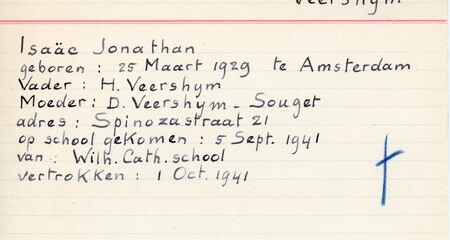 Veershym
Isaäc Jonathan
geboren : 25 Maart 1929 te Amsterdam
Vader : H. Veershym
Moeder : D. Veershym - Souget
adres : Spinozastraat 21
op school gekomen : 5 Sept. 1941
van : Wilh. Cath. school
vertrokken : 1 Oct. 1941